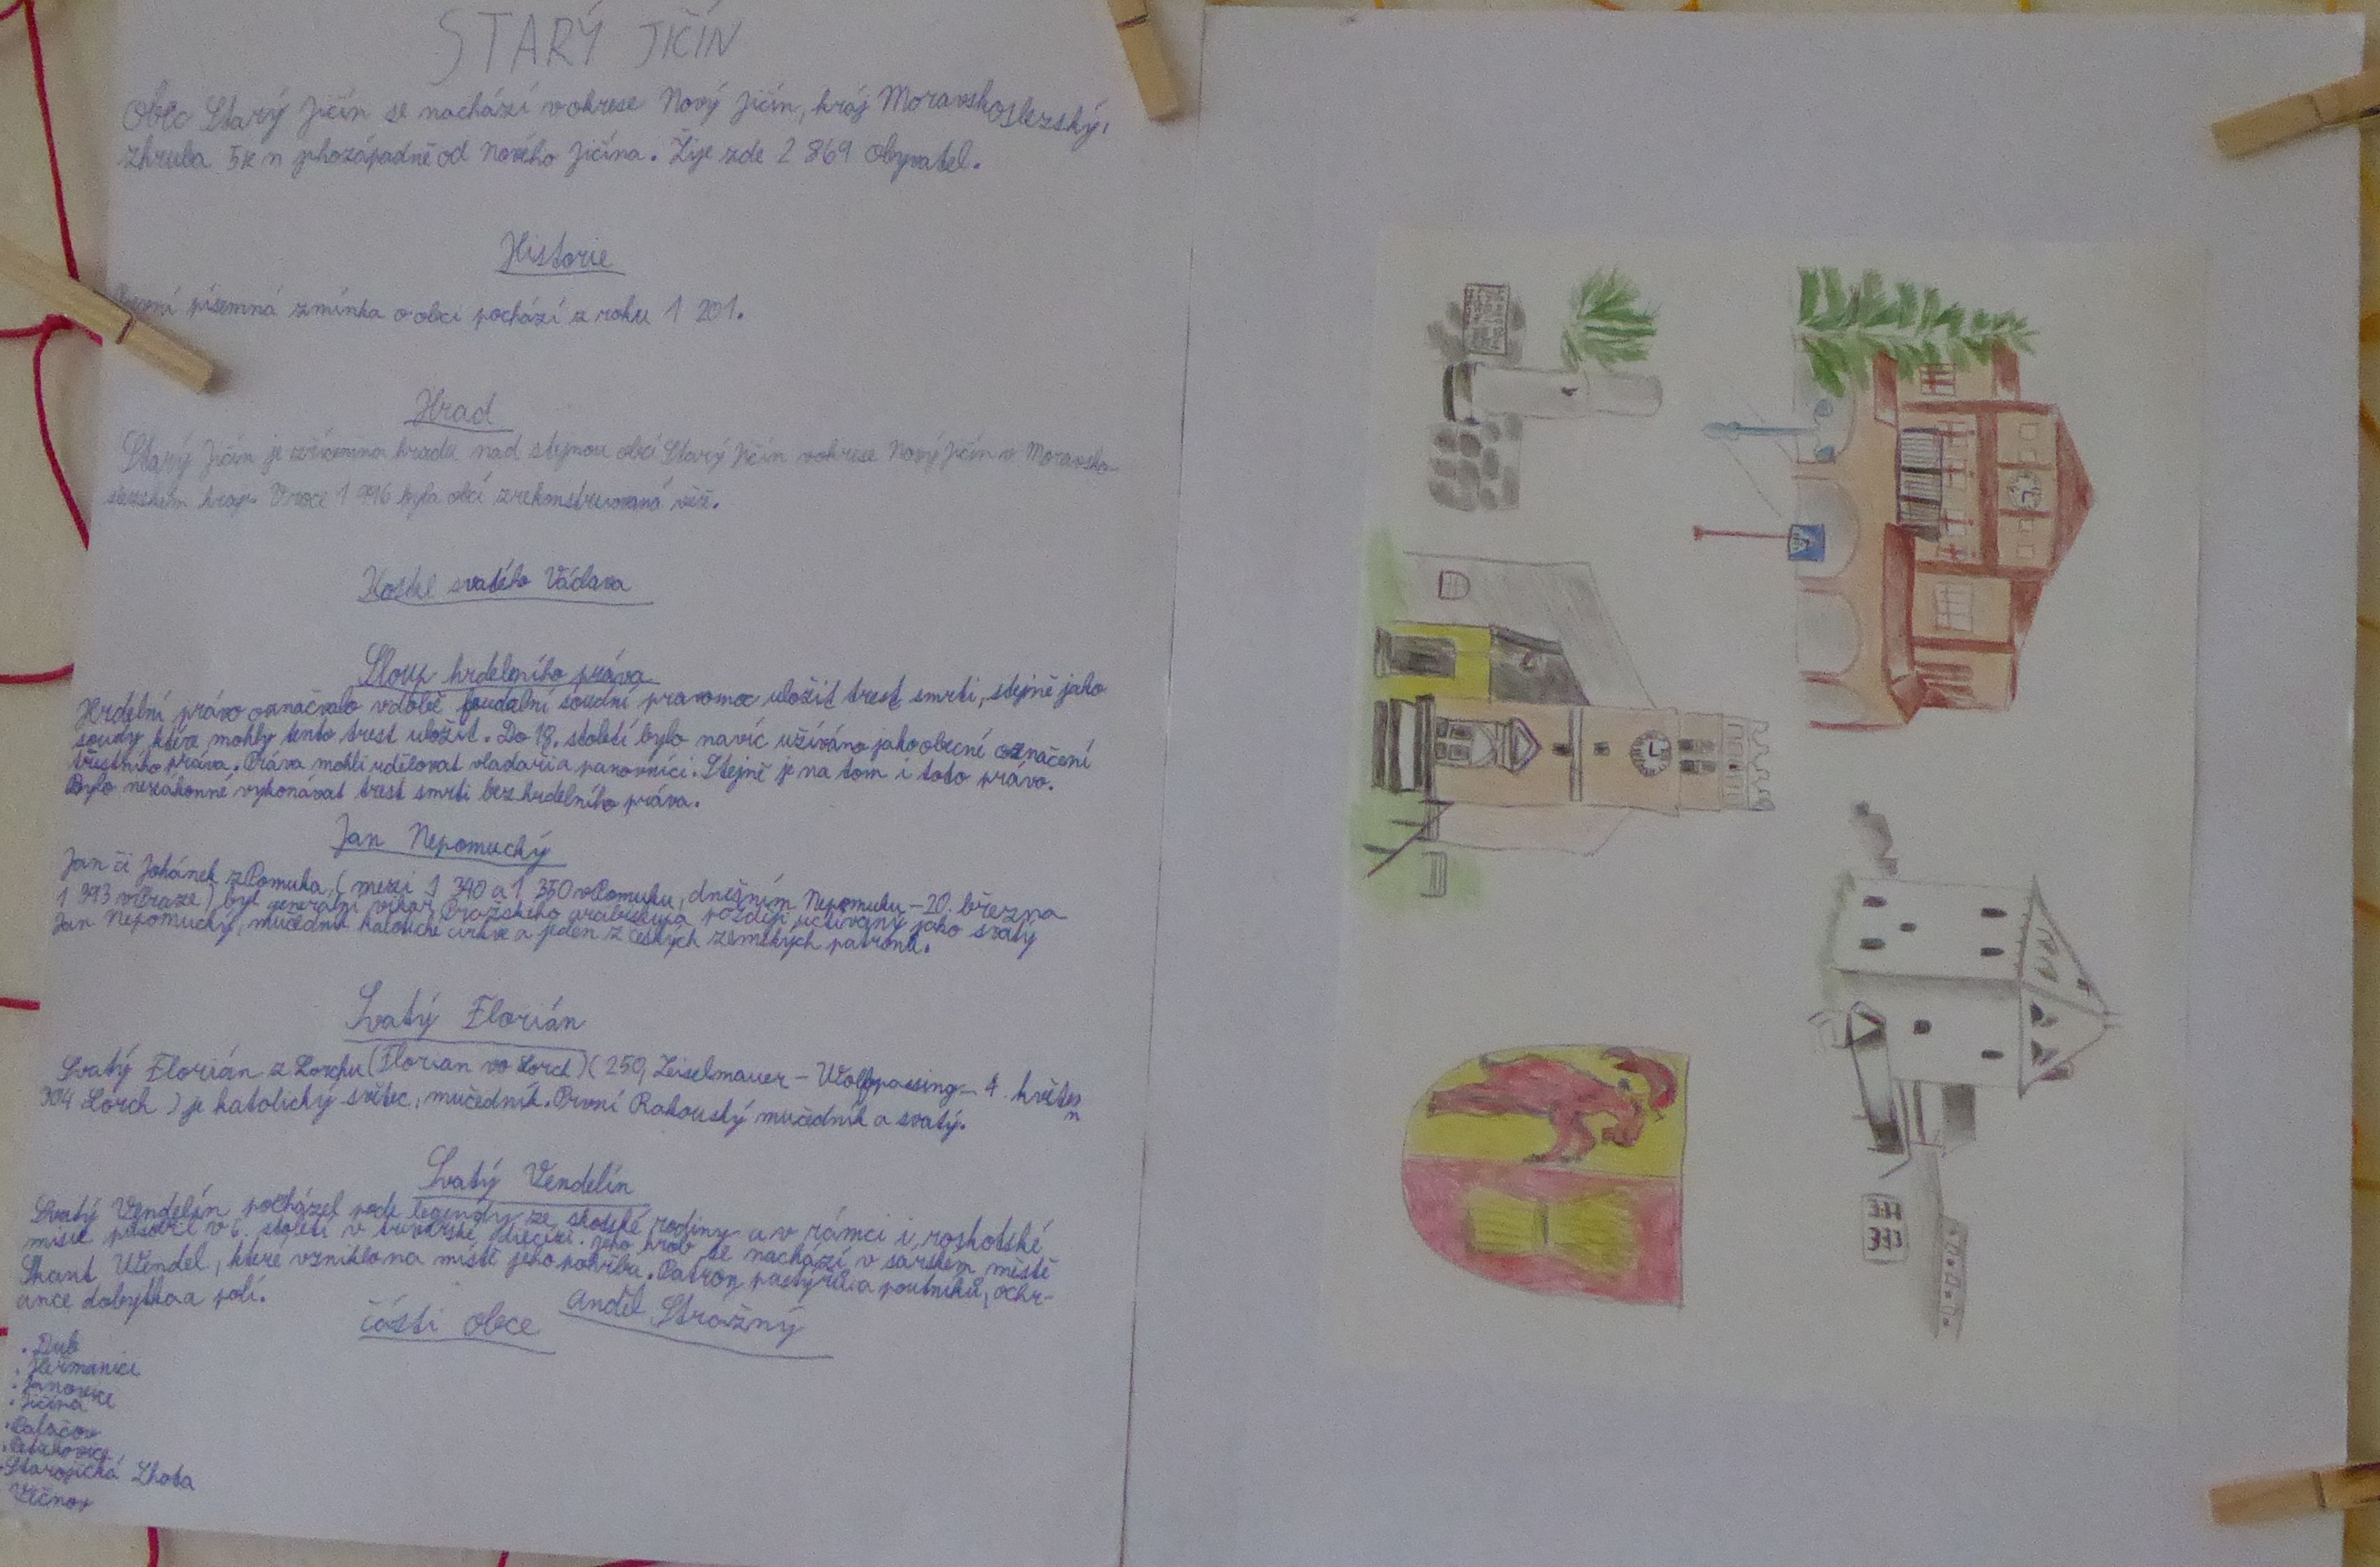 STARÝ JIČÍN
Obec Starý Jičín se nachází v okrese Nový Jičín, kraj Moravskoslezský,
zhruba 5km jihozápadně od Nového Jičína. Žije zde 2 869 obyvatel.
Historie
První písemná zmínka o obci pochází z roku 1 201.
Hrad
Starý Jičín je zřícenina hradu nad stejnou obcí Starý Jičín v okrese Nový Jičín v Moravsko
slezském kraji. V roce 1 996 byla obcí zrekonstruovaná věž.
Kostel svatého Václava
Sloup hrdelního práva
Hrdelní právo označvalo v době feudalní soudní pravomoc uložit trest smrti, stejně jako
soudy které mohly tento trest uložit. Do 18. století bylo navíc užíváno jako obecné označení
trestního práva. Práva mohli udělovat vladaři a panovníci. Stejně je na tom i toto právo.
Bylo nezákonné vykonávat trest smrti bez hrdelního práva.
Jan Nepomucký
Jan či Johánek z Pomuka, (mezi 1 340 a 1 350 v Pomuku, dnešním Nepomuku - 20. března
1 393 v Praze) byl generální vikář Pražského arcibiskupa později uctívaný jako svatý
Jan Nepomucký, mučedník katolické církve a jeden z českých zemských patronů.
Svatý Florián
Svatý Florián z Lorchu (Florian vo Lorch) (250, Zeiselmauer - Wolfpassing - 4. květen
304 Lorch) je katolický světec, mučedník. První Rakouský mučedník a svatý.
Svatý Vendelín
Svatý Vendelín pocházel podle legendy ze skotské rodiny a v rámci iroskotské
misie působil v 6. století v trevírské diecézi. Jeho hrob se nachází v sárském městě
Sankt Wendel, které vzniklo na místě jeho pohřbu. Patron pastýřů a poutníků, ochr-
ance dobytka a polí.
Anděl Strážný
části obce
• Dub
• Heřmanice
• Janovice
• Jičina
• Palačov
• Petřkovice
• Starojická Lhota
Vlčnov